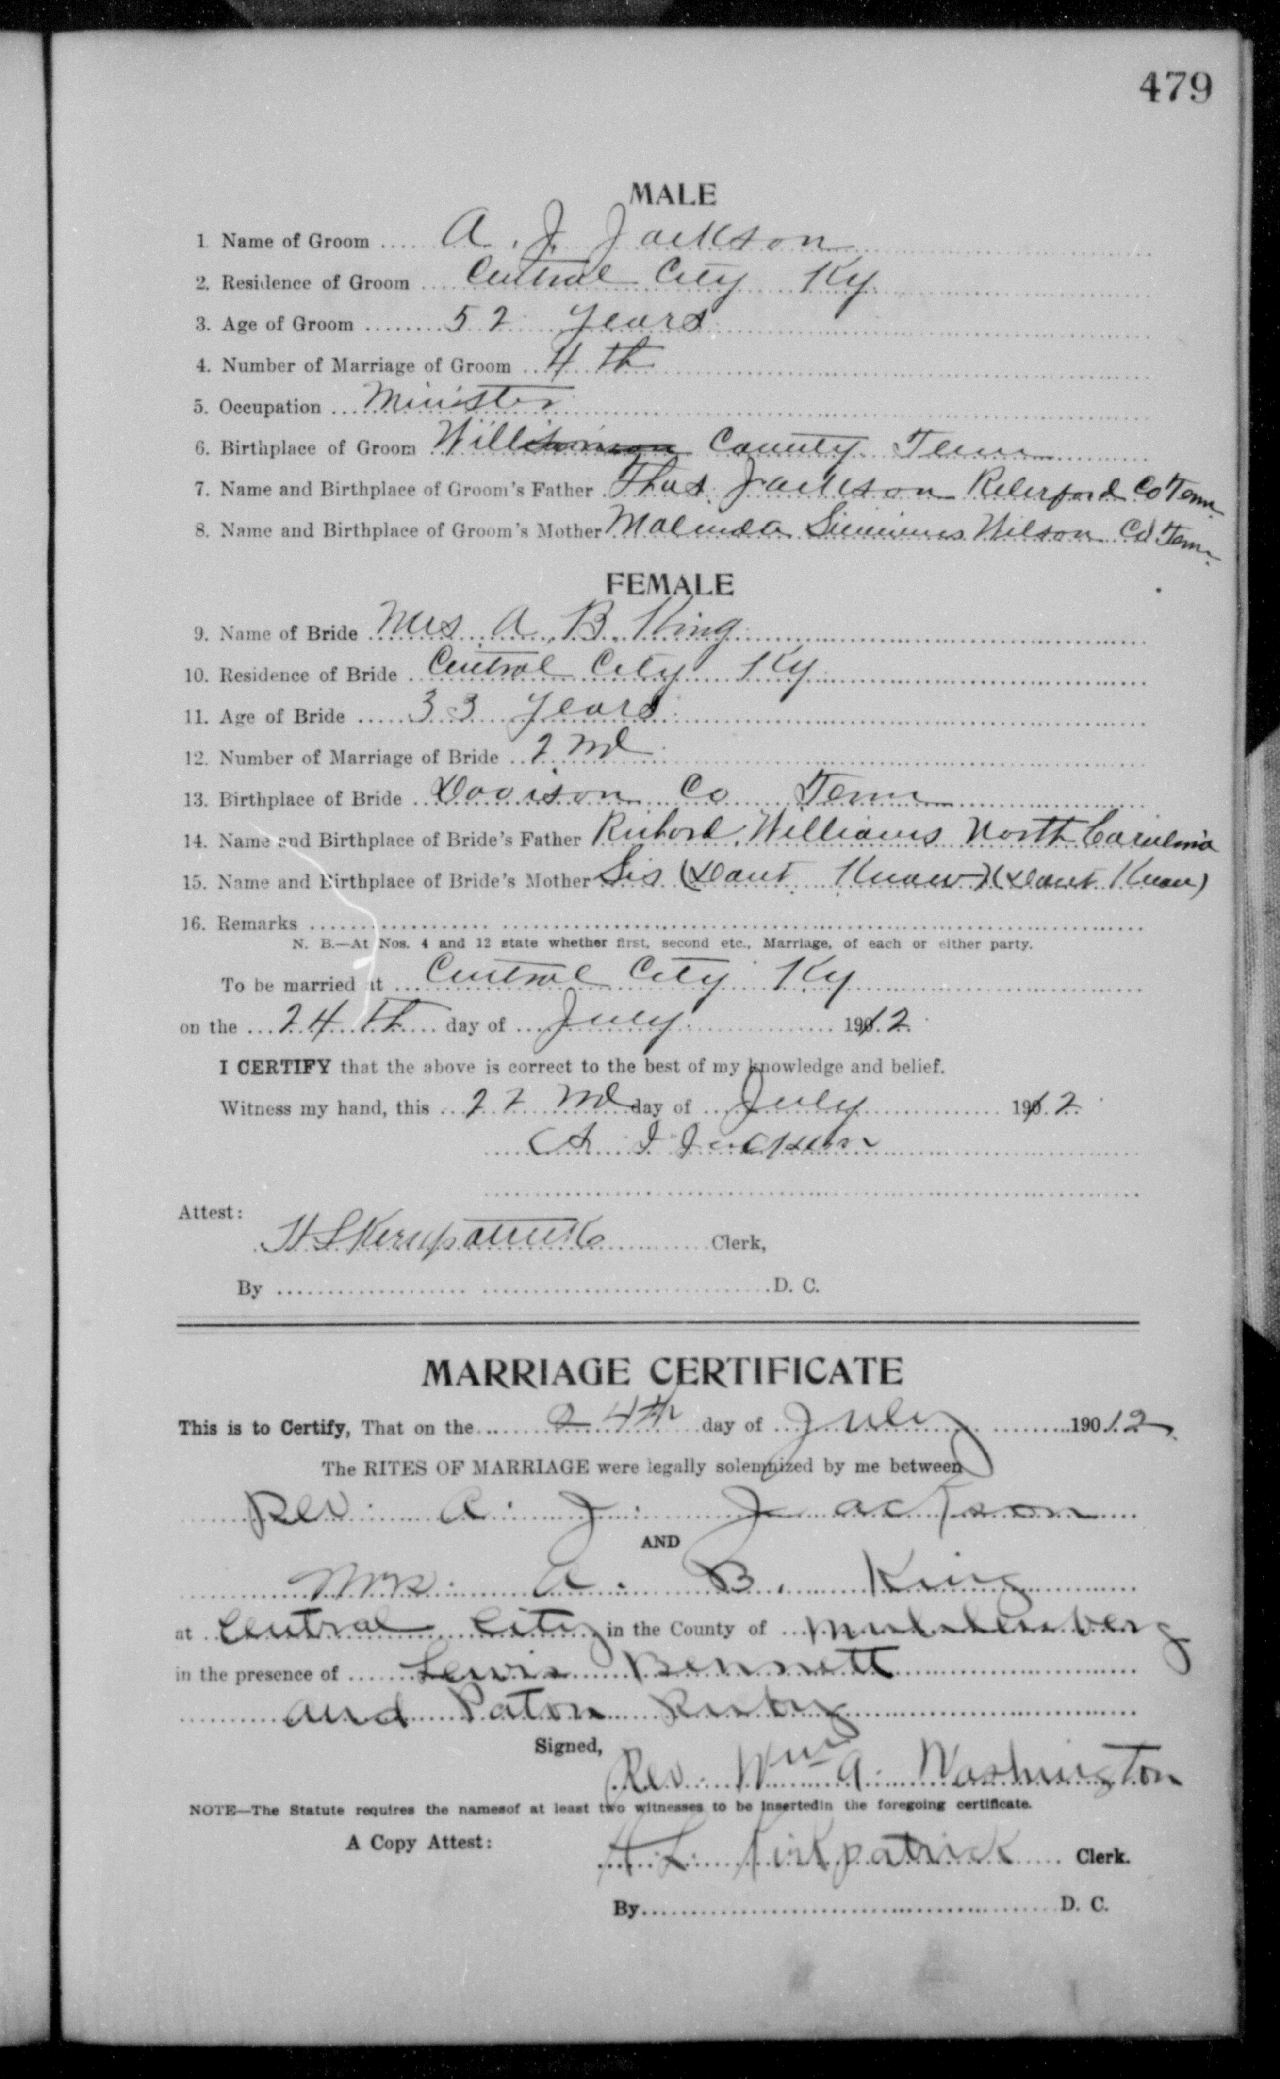 479
MALE
1 Name of Groom .... A. J. Jackson
2. Residence of Groom .... Central City Ky.
3. Age of Groom ........ 52 years
4. Number of Marriage of Groom .. 4 th
5. Occupation ... Minister
6. Birthplace of Groom County Tenn
7. Name and Birthplace of Groom's Father Thos. Jackson Co Tenn.
8. Name and Birthplace of Groom's Mother Malinda Simmons Wilson Co Tenn.
FEMALE
9. Name of Bride Mrs A. B. King
10. Residence of Bride Central City Ky
11. Age of Bride ..... 33 years
12. Number of Marriage of Bride .. 2 nd
13. Birthplace of Bride .. Co Tenn
14. Name and Birthplace of Bride's Father Williams North
15. Name and Birthplace of Bride's Mother Sis (Dont Know) (Dont Know)
16. Remarks
N. B.—At Nos. 4 and 12 state whether first, second etc., Marriage, of each or either party.
To be married at ... Central City Ky
on the ... 24 th .... day of .... July ............... 1912.
I CERTIFY that the above is correct to the best of my knowledge and belief.
Witness my hand, this ... 22 nd day of ... July ............... 1912.
A J Jackson
Attest:
H L Kirkpatrick Clerk,
By D. C.
MARRIAGE CERTIFICATE
This is to Certify, That on the 24th day of July 19012
The RITES OF MARRIAGE were legally solemnized by me between
Rev. A. J. Jackson
AND
Mrs. A. B. King
at Central City in the County of Muhlenberg
in the presence of Lewis Bennett
and Paton Ruby
Signed,
Rev. Wm A. Washington
NOTE—The Statute requires the namesof at least two witnesses to be insertedin the foregoing certificate.
A Copy Attest: H. L. Kirkpatrick Clerk.
By D. C.